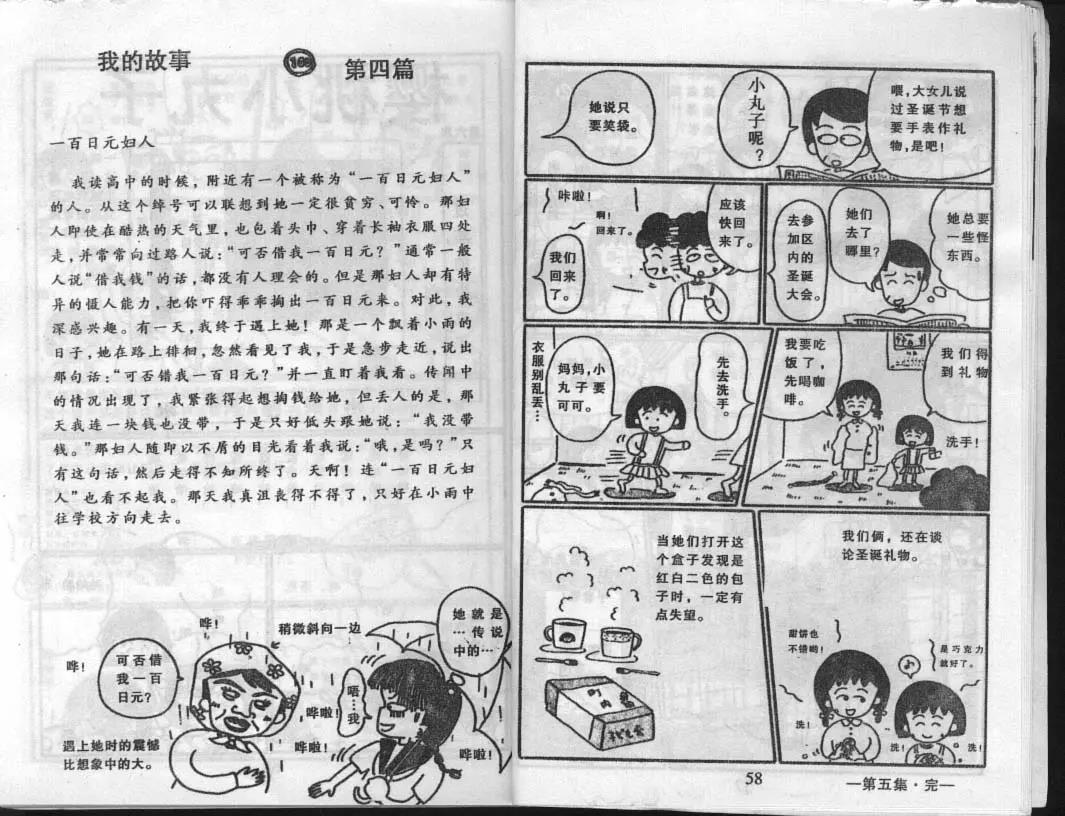 我的故事
100
第四篇
一百日元妇人
我读高中的时候，附近有一个被称为“一百日元妇人”
的人。从这个绰号可以联想到她一定很贫穷、可怜。那妇
人即使在酷热的天气里，也包着头巾、穿着长袖衣服四处
走，并常常向过路人说：“可否借我一百日元？”通常一般
人说“借我钱”的话，都没有人理会的。但是那妇人却有特
异的慑人能力，把你吓得乖乖掏出一百日元来。对此，我
深感兴趣。有一天，我终于遇上她！那是一个飘着小雨的
日子，她在路上徘徊，忽然看见了我，于是急步走近，说出
那句话：“可否错我一百日元？”并一直盯着我看。传闻中
的情况出现了，我紧张得起想掏钱给她，但丢人的是，那
天我连一块钱也没带，于是只好低头跟她说：“我没带
钱。”那妇人随即以不屑的目光看着我说：“哦，是吗？”只
有这句话，然后走得不知所终了。天啊！连“一百日元妇
人”也看不起我。那天我真沮丧得不得了，只好在小雨中
往学校方向走去。
哗！
稍微斜向一边
她就是
…传说
中的…
哗！
可否借
我一百
日元？
唔
…
我
哗啦！
哗啦！
哗啦！
遇上她时的震憾
比想象中的大。
喂，大女儿说
过圣诞节想
要手表作礼
物，是吧！
小丸子呢？
她说只
要笑袋。
她总要
一些怪
东西。
她们
去了
哪里？
去参
加区
内的
圣诞
大会。
应该
快回
来了。
咔啦！
啊！
回来了。
我们
回来
了。
我们得
到礼物
我要吃
饭了，
先喝咖
啡。
洗手！
先去洗手。
妈妈，小
丸子要
可可。
衣服别乱丢…
我们俩，还在谈
论圣诞礼物。
甜饼也
不错哟！
是巧克力
就好了。
洗！
洗！
洗！
当她们打开这
个盒子发现是
红白二色的包
子时，一定有
点失望。
町内
58
—第五集·完—